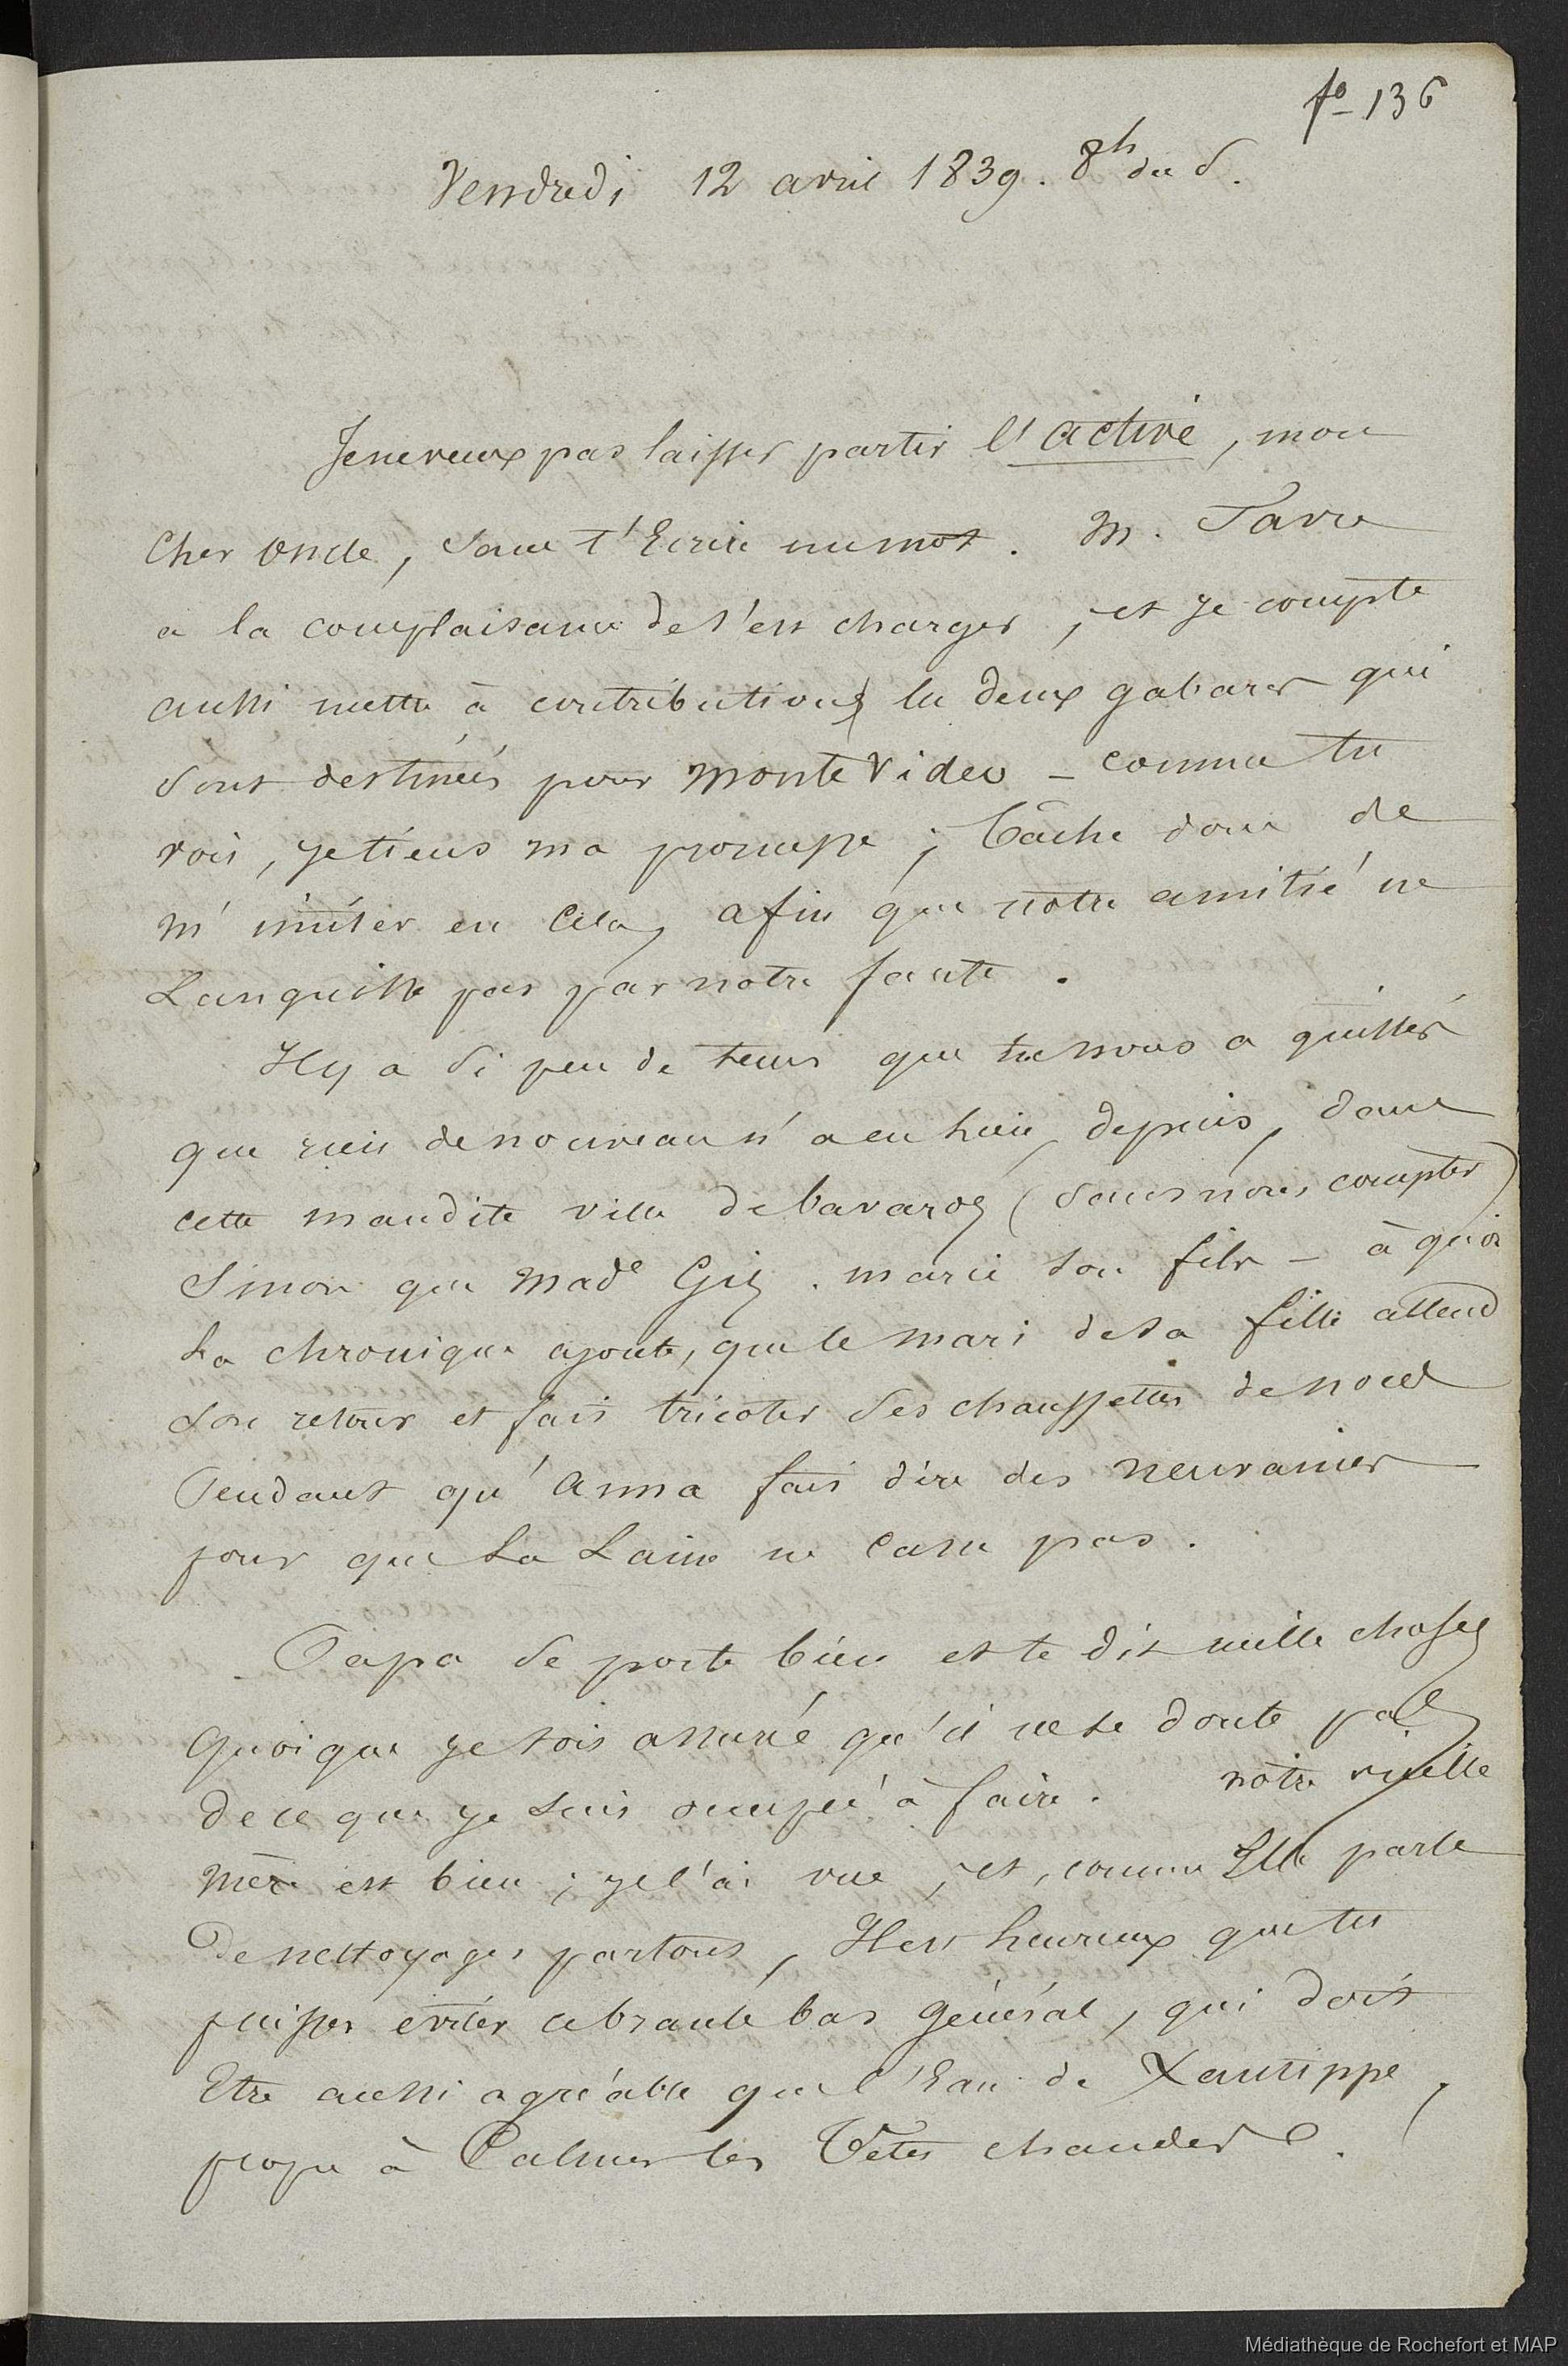 fo 136
Vendredi 12 avril 1839. 8h du s.
Je ne veux pas laisser partir l'active, mon
cher oncle, sans t'Ecrire un mot. M. Savre
a la complaisance de s'en charger, et je compte
aussi mettre à contribution les deux gabares qui
sont destinées pour Monte Video - comme tu
vois, je tiens ma promesse ; tâche donc de
m'imiter en cela, afin que notre amitié ne
Languisse pas par notre faute.
Il y a si peu de tems que tu nous a quittés
que rien de nouveau n'a eu lieu, depuis, dans
cette maudite ville de bavards (sans nous compter)
Sinon que Made Gil . marie son fils - à quoi
la chronique ajoute, que le mari de sa fille attend
son retour et fais tricoter des chaussettes de noces
Pendant qu'Anna fais dire des neuvaines
pour que la Laine ne casse pas.
Papa se porte bien et te dit mille choses
quoique je sois assuré qu'il ne se doute pas
de ce que je suis occupé à faire. notre vieille
mère est bien ; je l'ai vue, et, comme Elle parle
De nettoyages partout, Il est heureux que tu
puisses éviter ce branle bas général, qui doit
Etre aussi agréable que l'Eau de Xantippe,
propre à Calmer les Têtes chaudes.
Médiathèque de Rochefort et MAP